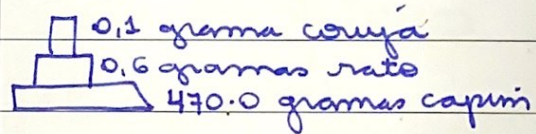 0,1 grama coruja
0,6 gramas rato
470.0 gramas capim